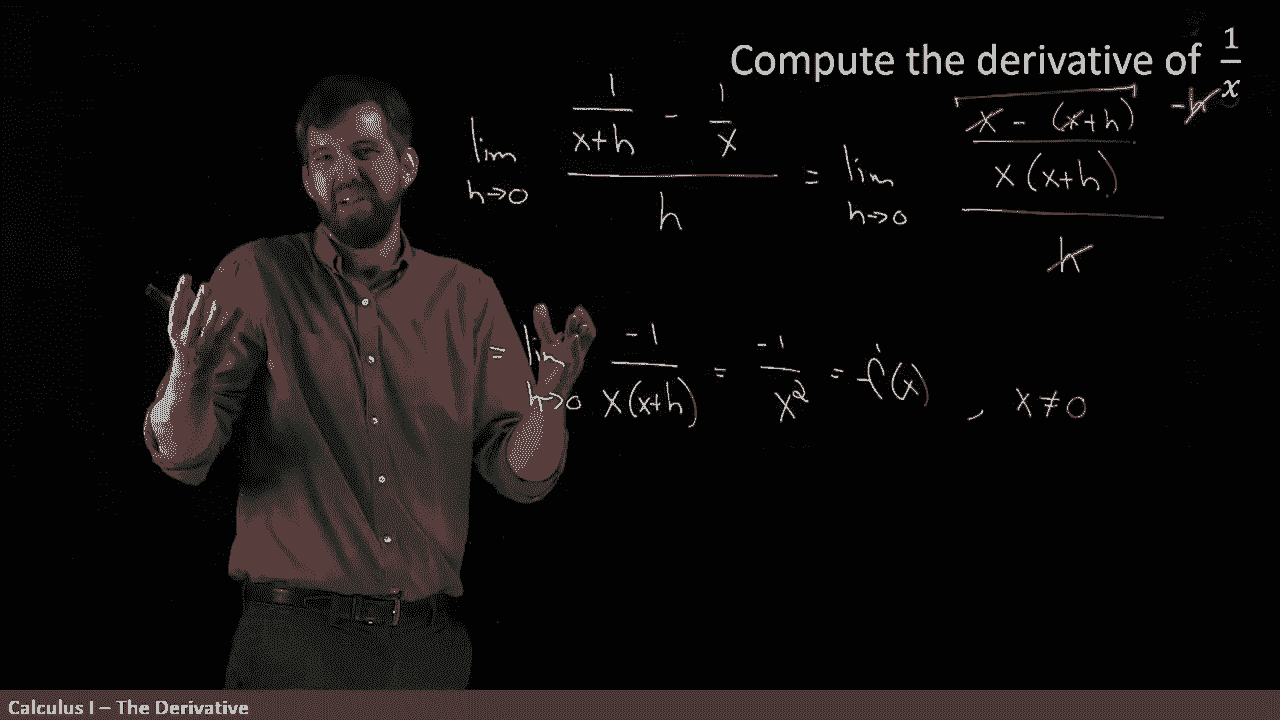 Compute the derivative of 1/x
lim h→0 (1/(x+h) - 1/x)/h = lim h→0 ((x - (x+h))/(x(x+h)))/h -h
= lim h→0 -1/(x(x+h)) = -1/x² = f'(x) , x ≠ 0
Calculus I – The Derivative